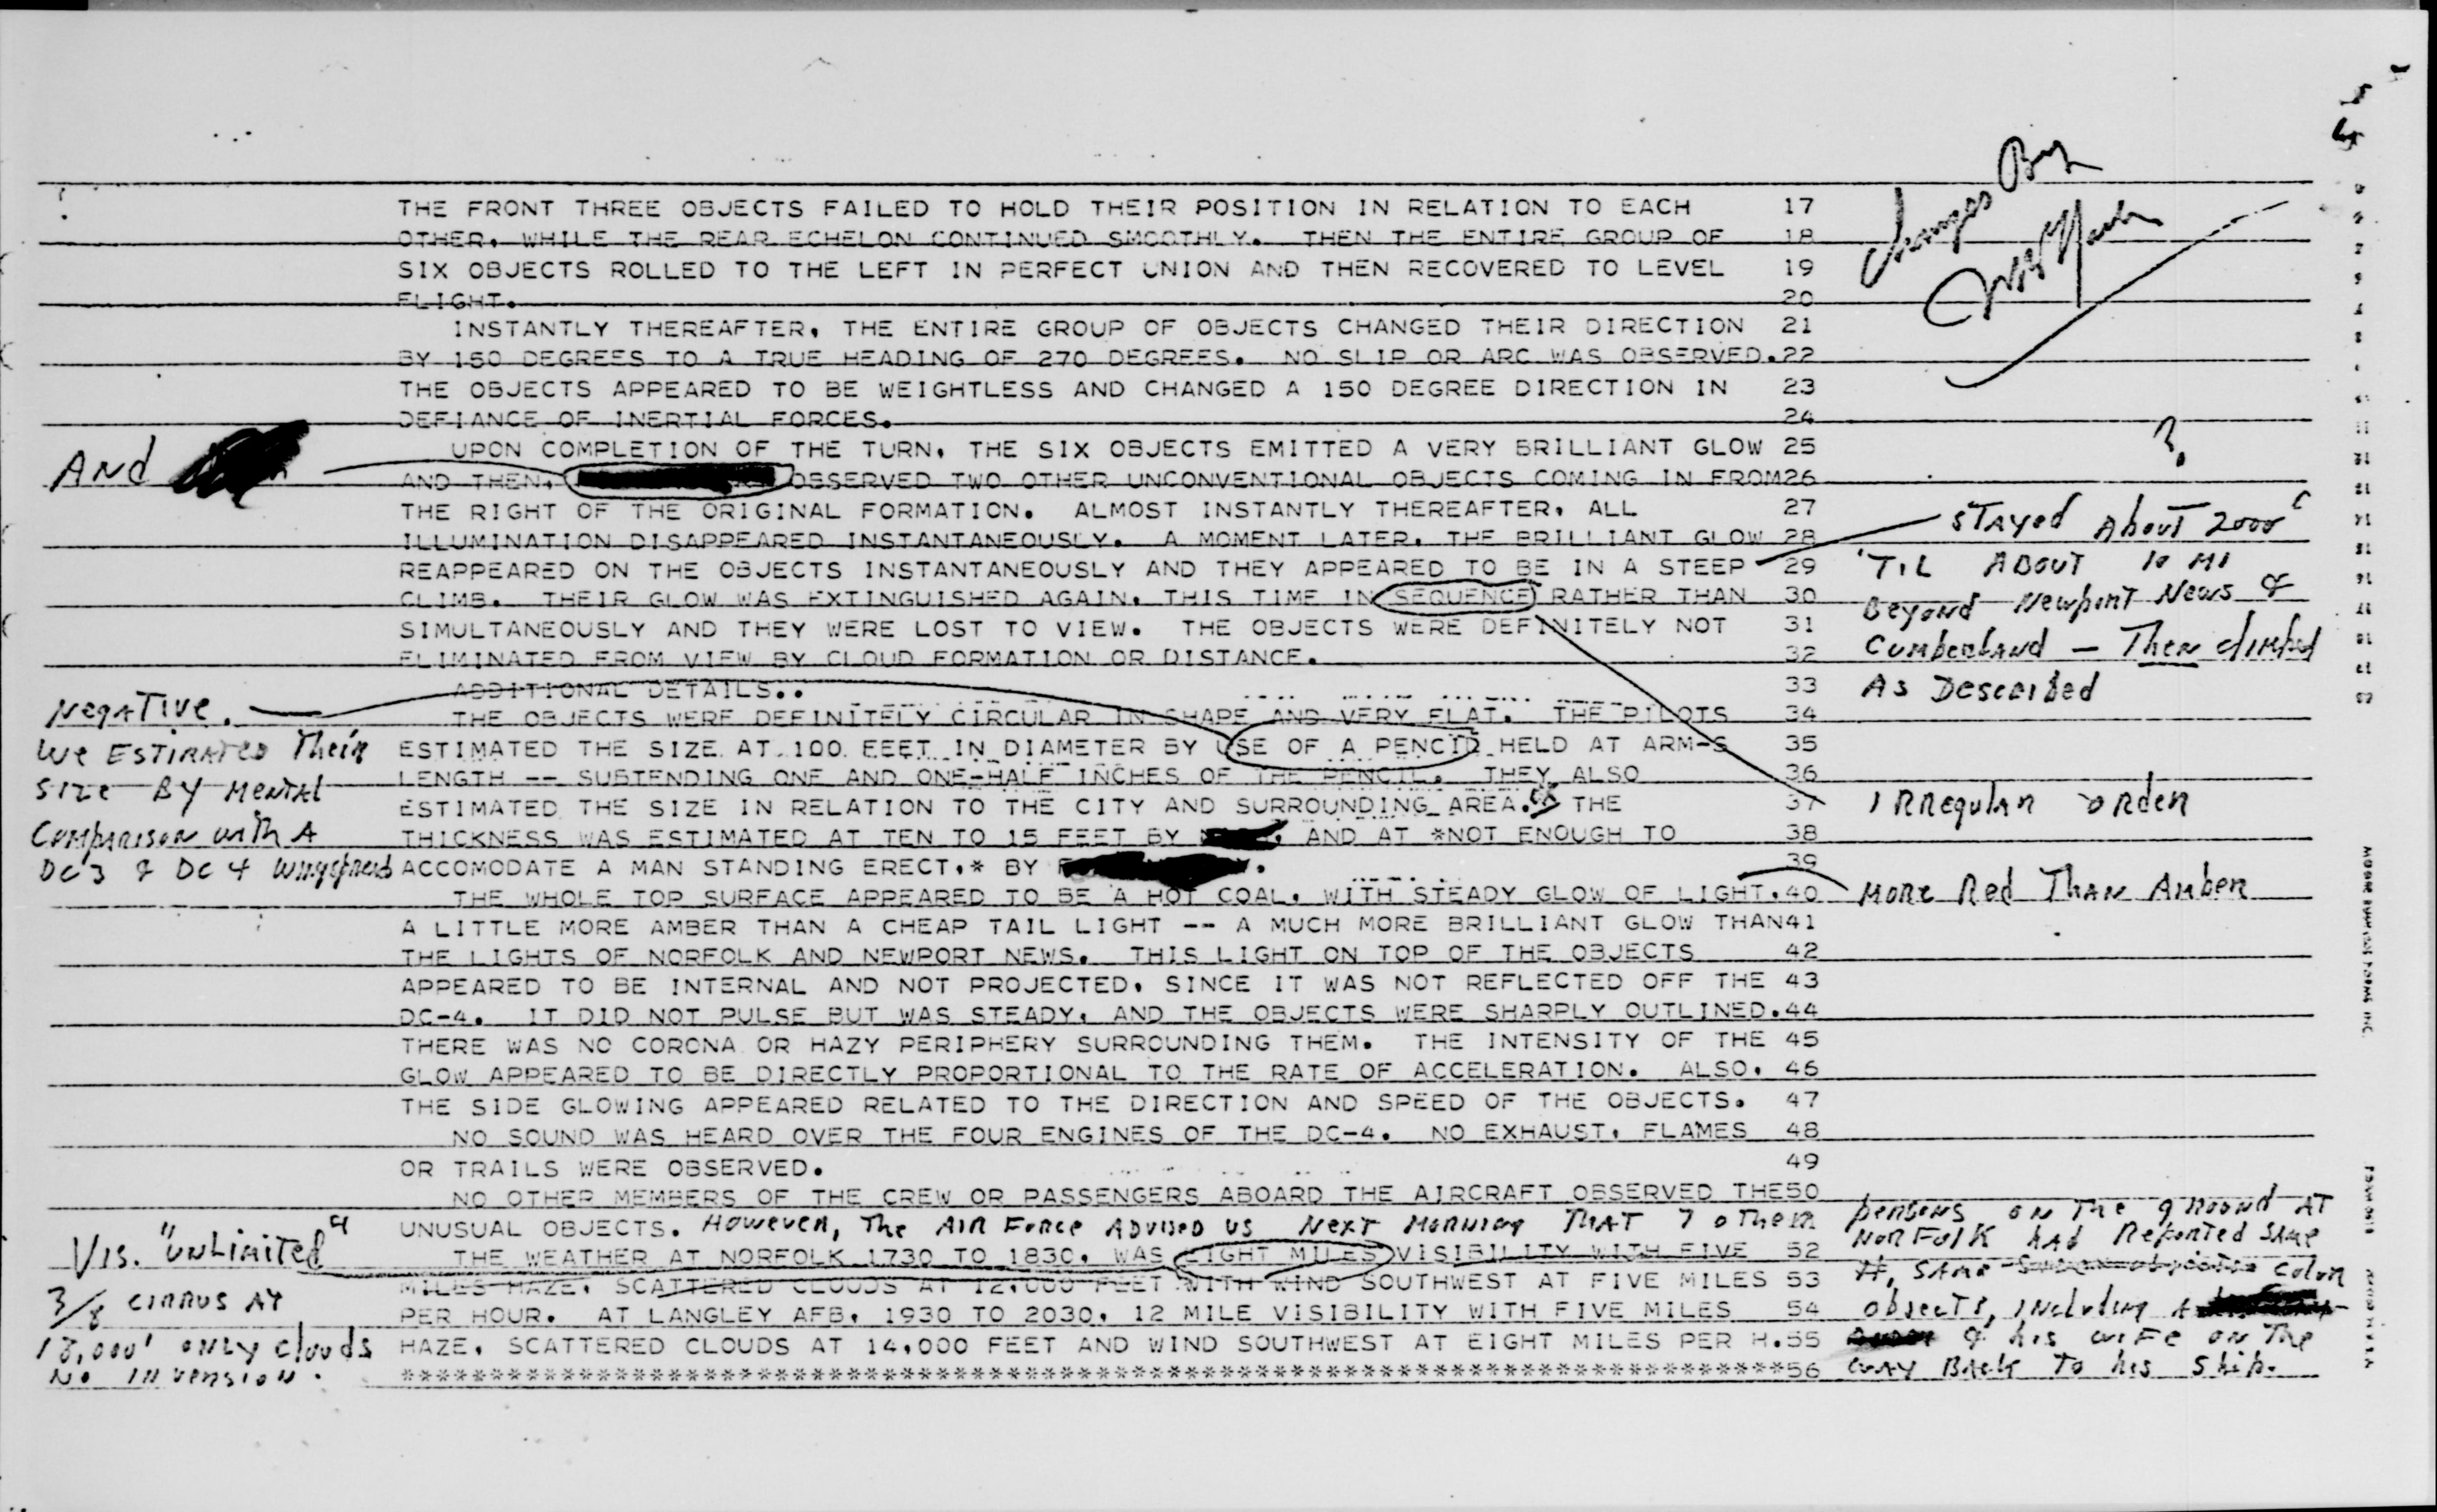 THE FRONT THREE OBJECTS FAILED TO HOLD THEIR POSITION IN RELATION TO EACH 17
OTHER, WHILE THE REAR ECHELON CONTINUED SMOOTHLY. THEN THE ENTIRE GROUP OF 18
SIX OBJECTS ROLLED TO THE LEFT IN PERFECT UNION AND THEN RECOVERED TO LEVEL 19
FLIGHT. 20
INSTANTLY THEREAFTER, THE ENTIRE GROUP OF OBJECTS CHANGED THEIR DIRECTION 21
BY 150 DEGREES TO A TRUE HEADING OF 270 DEGREES. NO SLIP OR ARC WAS OBSERVED.22
THE OBJECTS APPEARED TO BE WEIGHTLESS AND CHANGED A 150 DEGREE DIRECTION IN 23
DEFIANCE OF INERTIAL FORCES. 24
UPON COMPLETION OF THE TURN, THE SIX OBJECTS EMITTED A VERY BRILLIANT GLOW 25
AND THEN, OBSERVED TWO OTHER UNCONVENTIONAL OBJECTS COMING IN FROM26
THE RIGHT OF THE ORIGINAL FORMATION. ALMOST INSTANTLY THEREAFTER, ALL 27
ILLUMINATION DISAPPEARED INSTANTANEOUSLY. A MOMENT LATER, THE BRILLIANT GLOW 28
REAPPEARED ON THE OBJECTS INSTANTANEOUSLY AND THEY APPEARED TO BE IN A STEEP 29
CLIMB. THEIR GLOW WAS EXTINGUISHED AGAIN, THIS TIME IN SEQUENCE RATHER THAN 30
SIMULTANEOUSLY AND THEY WERE LOST TO VIEW. THE OBJECTS WERE DEFINITELY NOT 31
ELIMINATED FROM VIEW BY CLOUD FORMATION OR DISTANCE. 32
ADDITIONAL DETAILS.. 33
THE OBJECTS WERE DEFINITELY CIRCULAR IN SHAPE AND VERY FLAT. THE PILOTS 34
ESTIMATED THE SIZE AT 100 FEET IN DIAMETER BY USE OF A PENCIL HELD AT ARM-S 35
LENGTH -- SUBTENDING ONE AND ONE-HALF INCHES OF THE PENCIL. THEY ALSO 36
ESTIMATED THE SIZE IN RELATION TO THE CITY AND SURROUNDING AREA. THE 37
THICKNESS WAS ESTIMATED AT TEN TO 15 FEET BY AND AT *NOT ENOUGH TO 38
ACCOMODATE A MAN STANDING ERECT.* BY 39
THE WHOLE TOP SURFACE APPEARED TO BE A HOT COAL, WITH STEADY GLOW OF LIGHT,40
A LITTLE MORE AMBER THAN A CHEAP TAIL LIGHT -- A MUCH MORE BRILLIANT GLOW THAN41
THE LIGHTS OF NORFOLK AND NEWPORT NEWS. THIS LIGHT ON TOP OF THE OBJECTS 42
APPEARED TO BE INTERNAL AND NOT PROJECTED, SINCE IT WAS NOT REFLECTED OFF THE 43
DC-4. IT DID NOT PULSE BUT WAS STEADY, AND THE OBJECTS WERE SHARPLY OUTLINED.44
THERE WAS NO CORONA OR HAZY PERIPHERY SURROUNDING THEM. THE INTENSITY OF THE 45
GLOW APPEARED TO BE DIRECTLY PROPORTIONAL TO THE RATE OF ACCELERATION. ALSO, 46
THE SIDE GLOWING APPEARED RELATED TO THE DIRECTION AND SPEED OF THE OBJECTS. 47
NO SOUND WAS HEARD OVER THE FOUR ENGINES OF THE DC-4. NO EXHAUST, FLAMES 48
OR TRAILS WERE OBSERVED. 49
NO OTHER MEMBERS OF THE CREW OR PASSENGERS ABOARD THE AIRCRAFT OBSERVED THE50
UNUSUAL OBJECTS. However, The Air Force Advised us Next Morning That 7 others
THE WEATHER AT NORFOLK 1730 TO 1830, WAS EIGHT MILES VISIBILITY WITH FIVE 52
MILES HAZE, SCATTERED CLOUDS AT 12,000 FEET WITH WIND SOUTHWEST AT FIVE MILES 53
PER HOUR. AT LANGLEY AFB, 1930 TO 2030, 12 MILE VISIBILITY WITH FIVE MILES 54
HAZE, SCATTERED CLOUDS AT 14,000 FEET AND WIND SOUTHWEST AT EIGHT MILES PER H.55
******************************************************************************56
And
Negative.
We Estimated Their
size By Mental
Comparison with A
DC3 & DC4 wingspread
Vis. "unlimited"
3/8 cirrus at
18,000' only clouds
No inversion.
changes By
?
stayed About 2000'
'Til About 10 Mi
Beyond Newport News &
Cumberland — Then climbed
As Described
Irregular order
More Red Than Amber
persons on The ground at
Norfolk had Reported same
#, same color
objects, including a
& his wife on The
way Back to his ship.